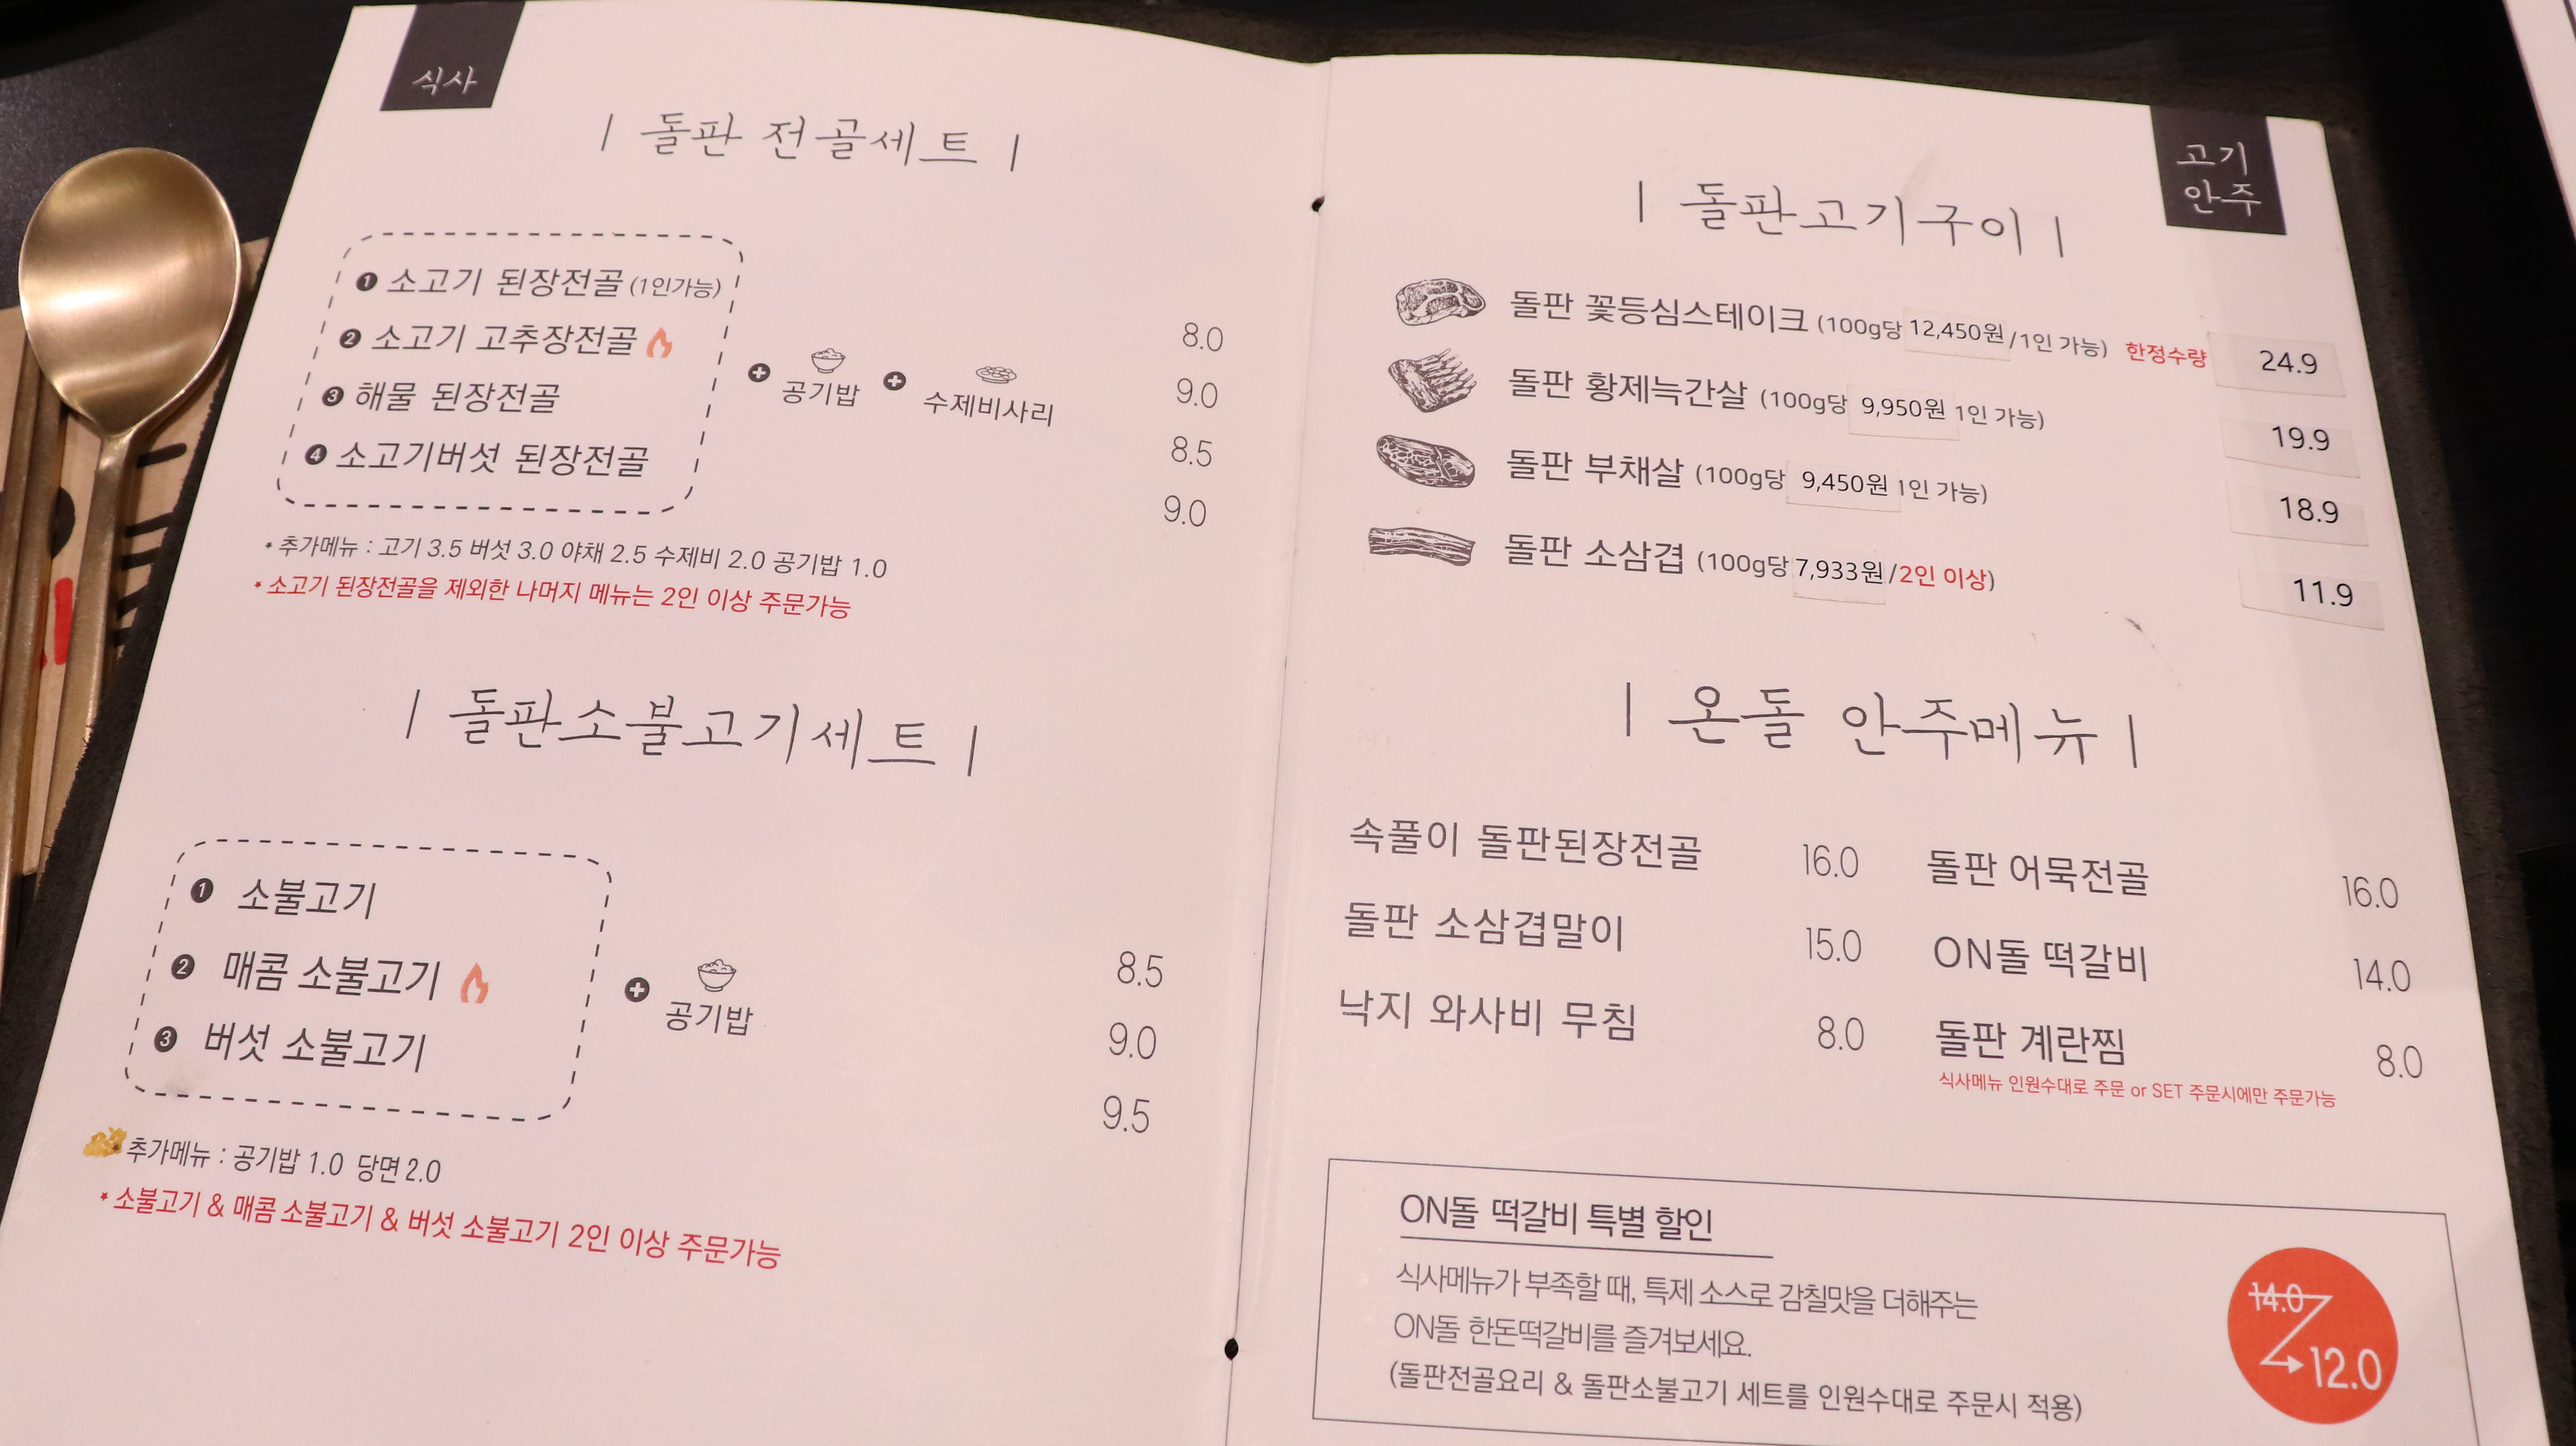 식사
| 돌판 전골세트 |
1 소고기 된장전골 (1인가능) 8.0
2 소고기 고추장전골 9.0
3 해물 된장전골 8.5
4 소고기버섯 된장전골 9.0
+ 공기밥 + 수제비사리
* 추가메뉴 : 고기 3.5 버섯 3.0 야채 2.5 수제비 2.0 공기밥 1.0
* 소고기 된장전골을 제외한 나머지 메뉴는 2인 이상 주문가능
| 돌판소불고기세트 |
1 소불고기 8.5
2 매콤 소불고기 9.0
3 버섯 소불고기 9.5
+ 공기밥
추가메뉴 : 공기밥 1.0 당면 2.0
* 소불고기 & 매콤 소불고기 & 버섯 소불고기 2인 이상 주문가능
고기
안주
| 돌판고기구이 |
돌판 꽃등심스테이크 (100g당 12,450원/1인 가능) 한정수량 24.9
돌판 황제늑간살 (100g당 9,950원 1인 가능) 19.9
돌판 부채살 (100g당 9,450원 1인 가능) 18.9
돌판 소삼겹 (100g당 7,933원/2인 이상) 11.9
| 온돌 안주메뉴 |
속풀이 돌판된장전골 16.0 돌판 어묵전골 16.0
돌판 소삼겹말이 15.0 ON돌 떡갈비 14.0
낙지 와사비 무침 8.0 돌판 계란찜 8.0
식사메뉴 인원수대로 주문 or SET 주문시에만 주문가능
ON돌 떡갈비 특별 할인
식사메뉴가 부족할 때, 특제 소스로 감칠맛을 더해주는
ON돌 한돈떡갈비를 즐겨보세요.
(돌판전골요리 & 돌판소불고기 세트를 인원수대로 주문시 적용)
14.0
12.0